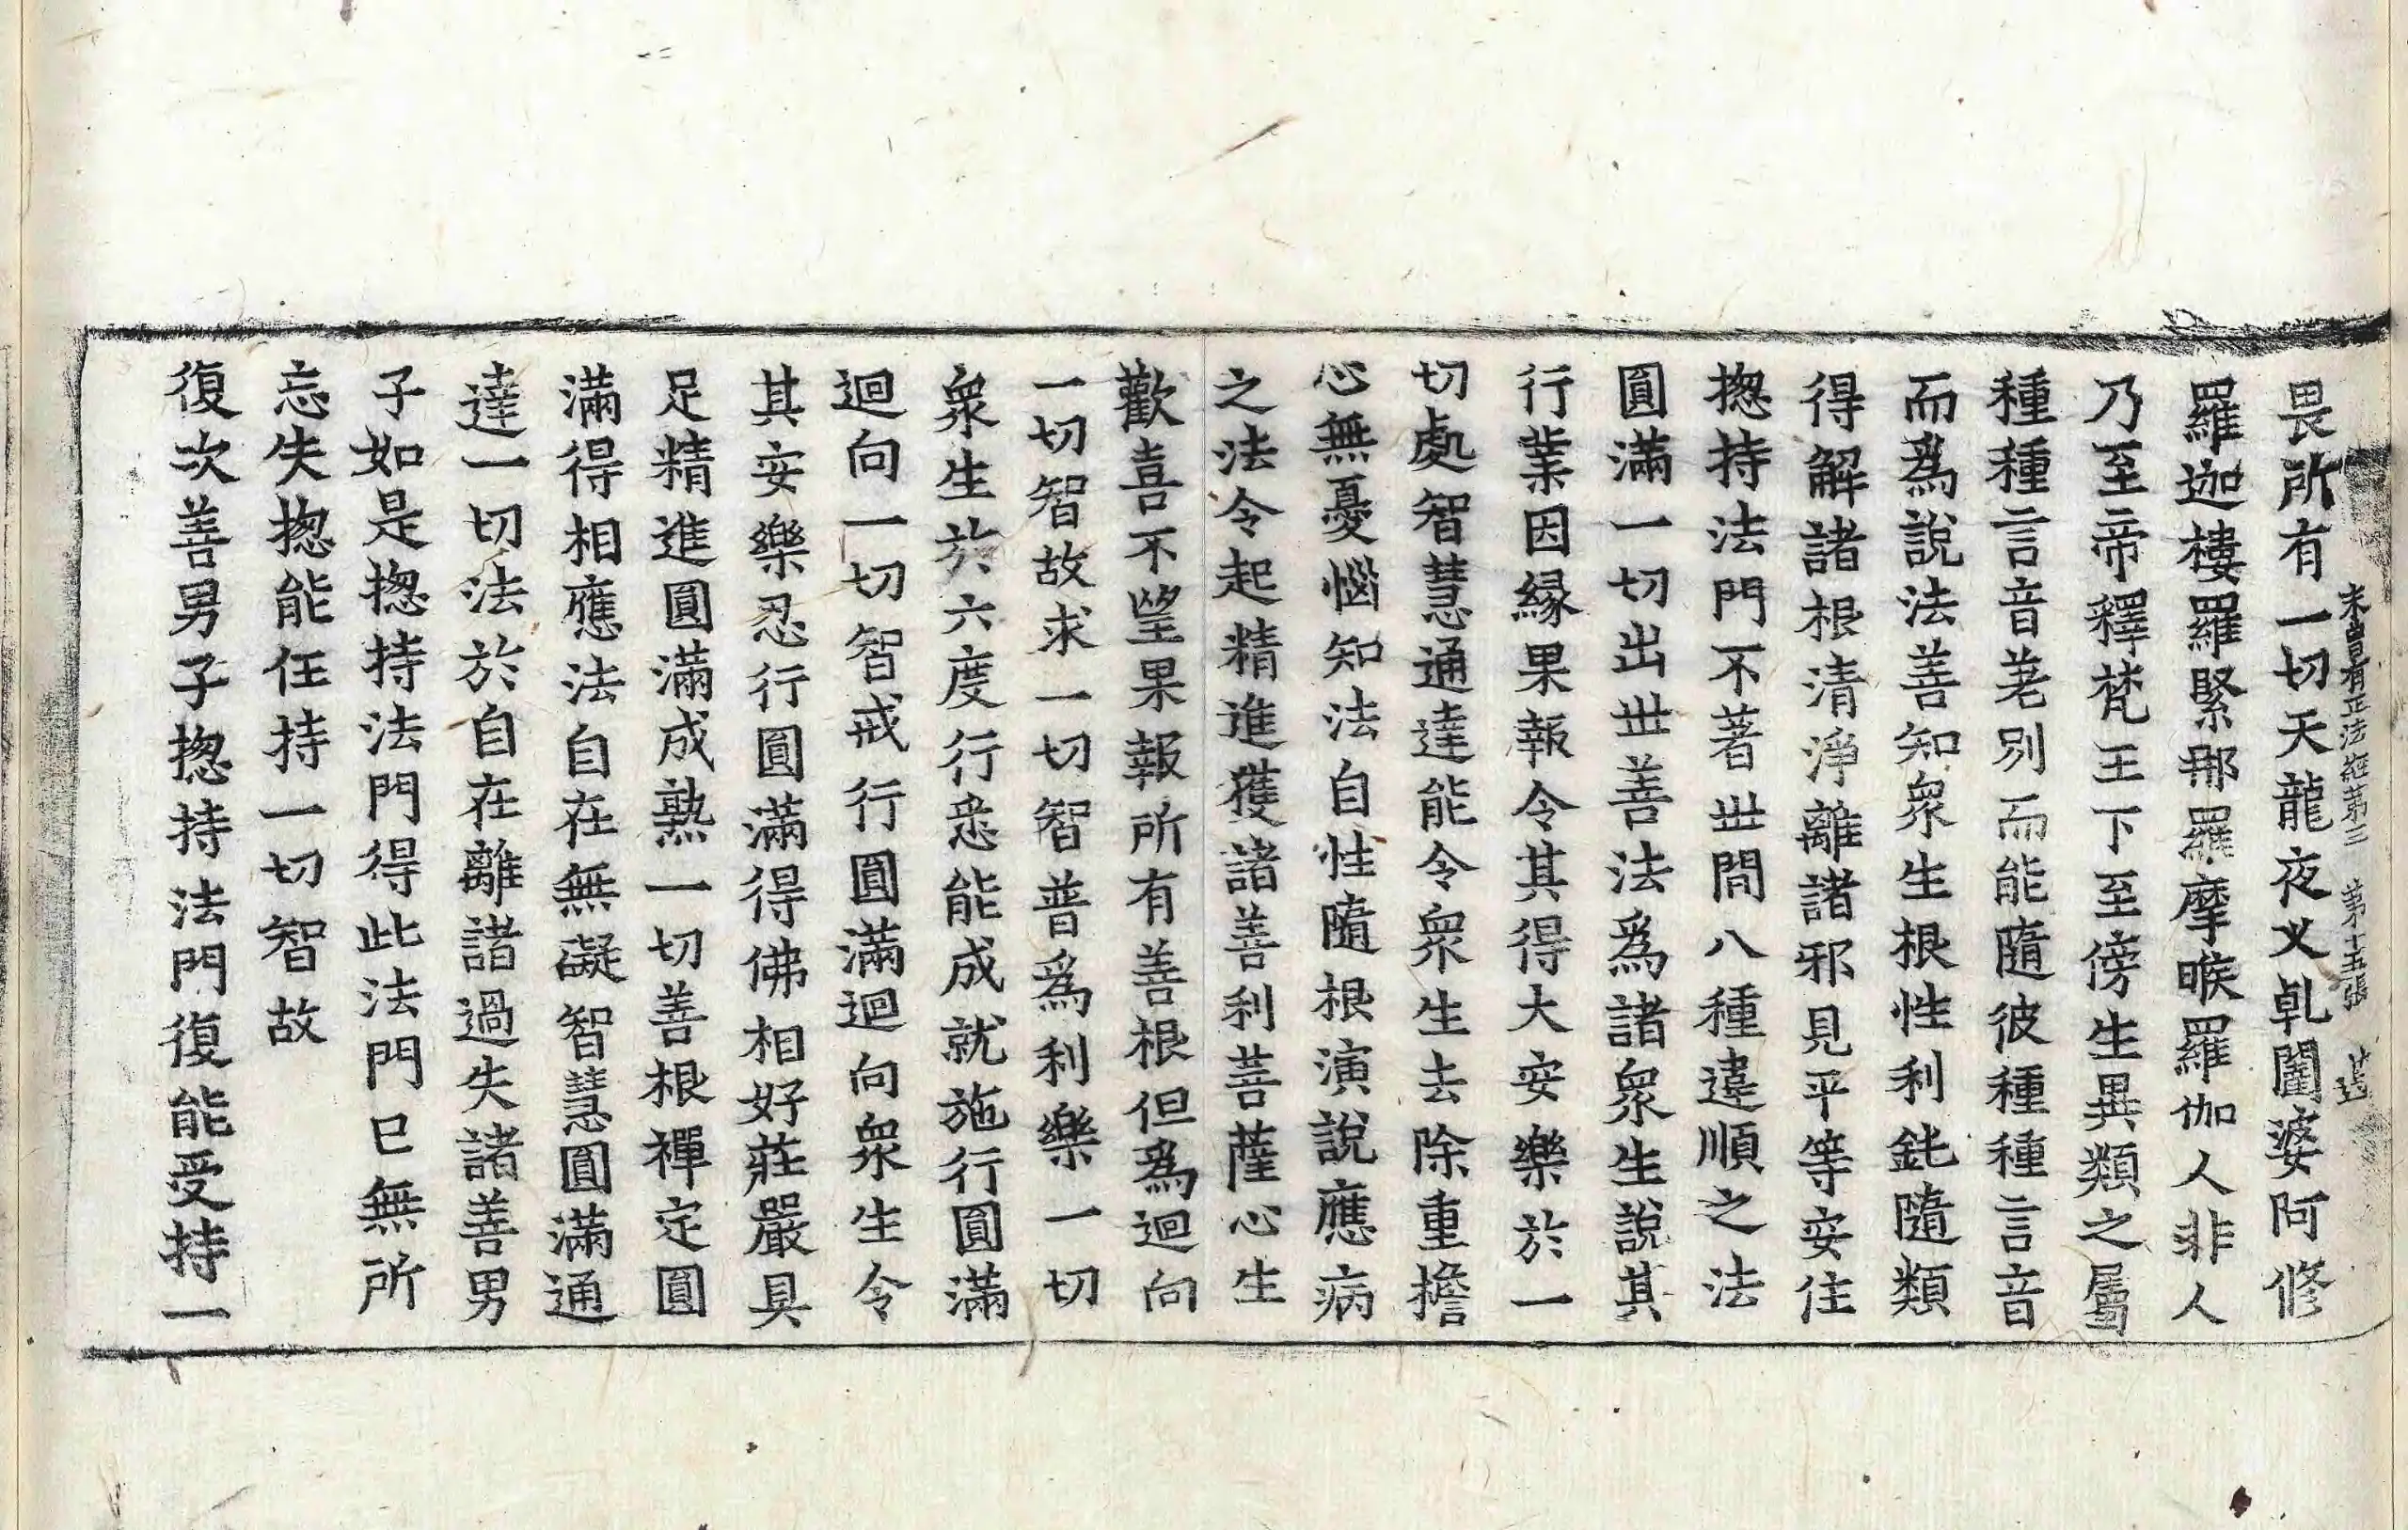 未曾有正法經第三 第十五張
畏所有一切天龍夜叉乹闥婆阿修
羅迦樓羅緊那羅摩睺羅伽人非人
乃至帝釋梵王下至傍生異類之屬
種種言音差別而能隨彼種種言音
而爲說法善知衆生根性利鈍隨類
得解諸根清淨離諸邪見平等安住
揔持法門不著世間八種違順之法
圓滿一切出世善法爲諸衆生說其
行業因緣果報令其得大安樂於一
切處智慧通達能令衆生去除重擔
心無憂惱知法自性隨根演說應病
之法令起精進獲諸善利菩薩心生
歡喜不望果報所有善根但爲迴向
一切智故求一切智普爲利樂一切
衆生於六度行悉能成就施行圓滿
迴向一切智戒行圓滿迴向衆生令
其安樂忍行圓滿得佛相好莊嚴具
足精進圓滿成熟一切善根禪定圓
滿得相應法自在無礙智慧圓滿通
達一切法於自在離諸過失諸善男
子如是揔持法門得此法門已無所
忘失揔能任持一切智故
復次善男子揔持法門復能受持一